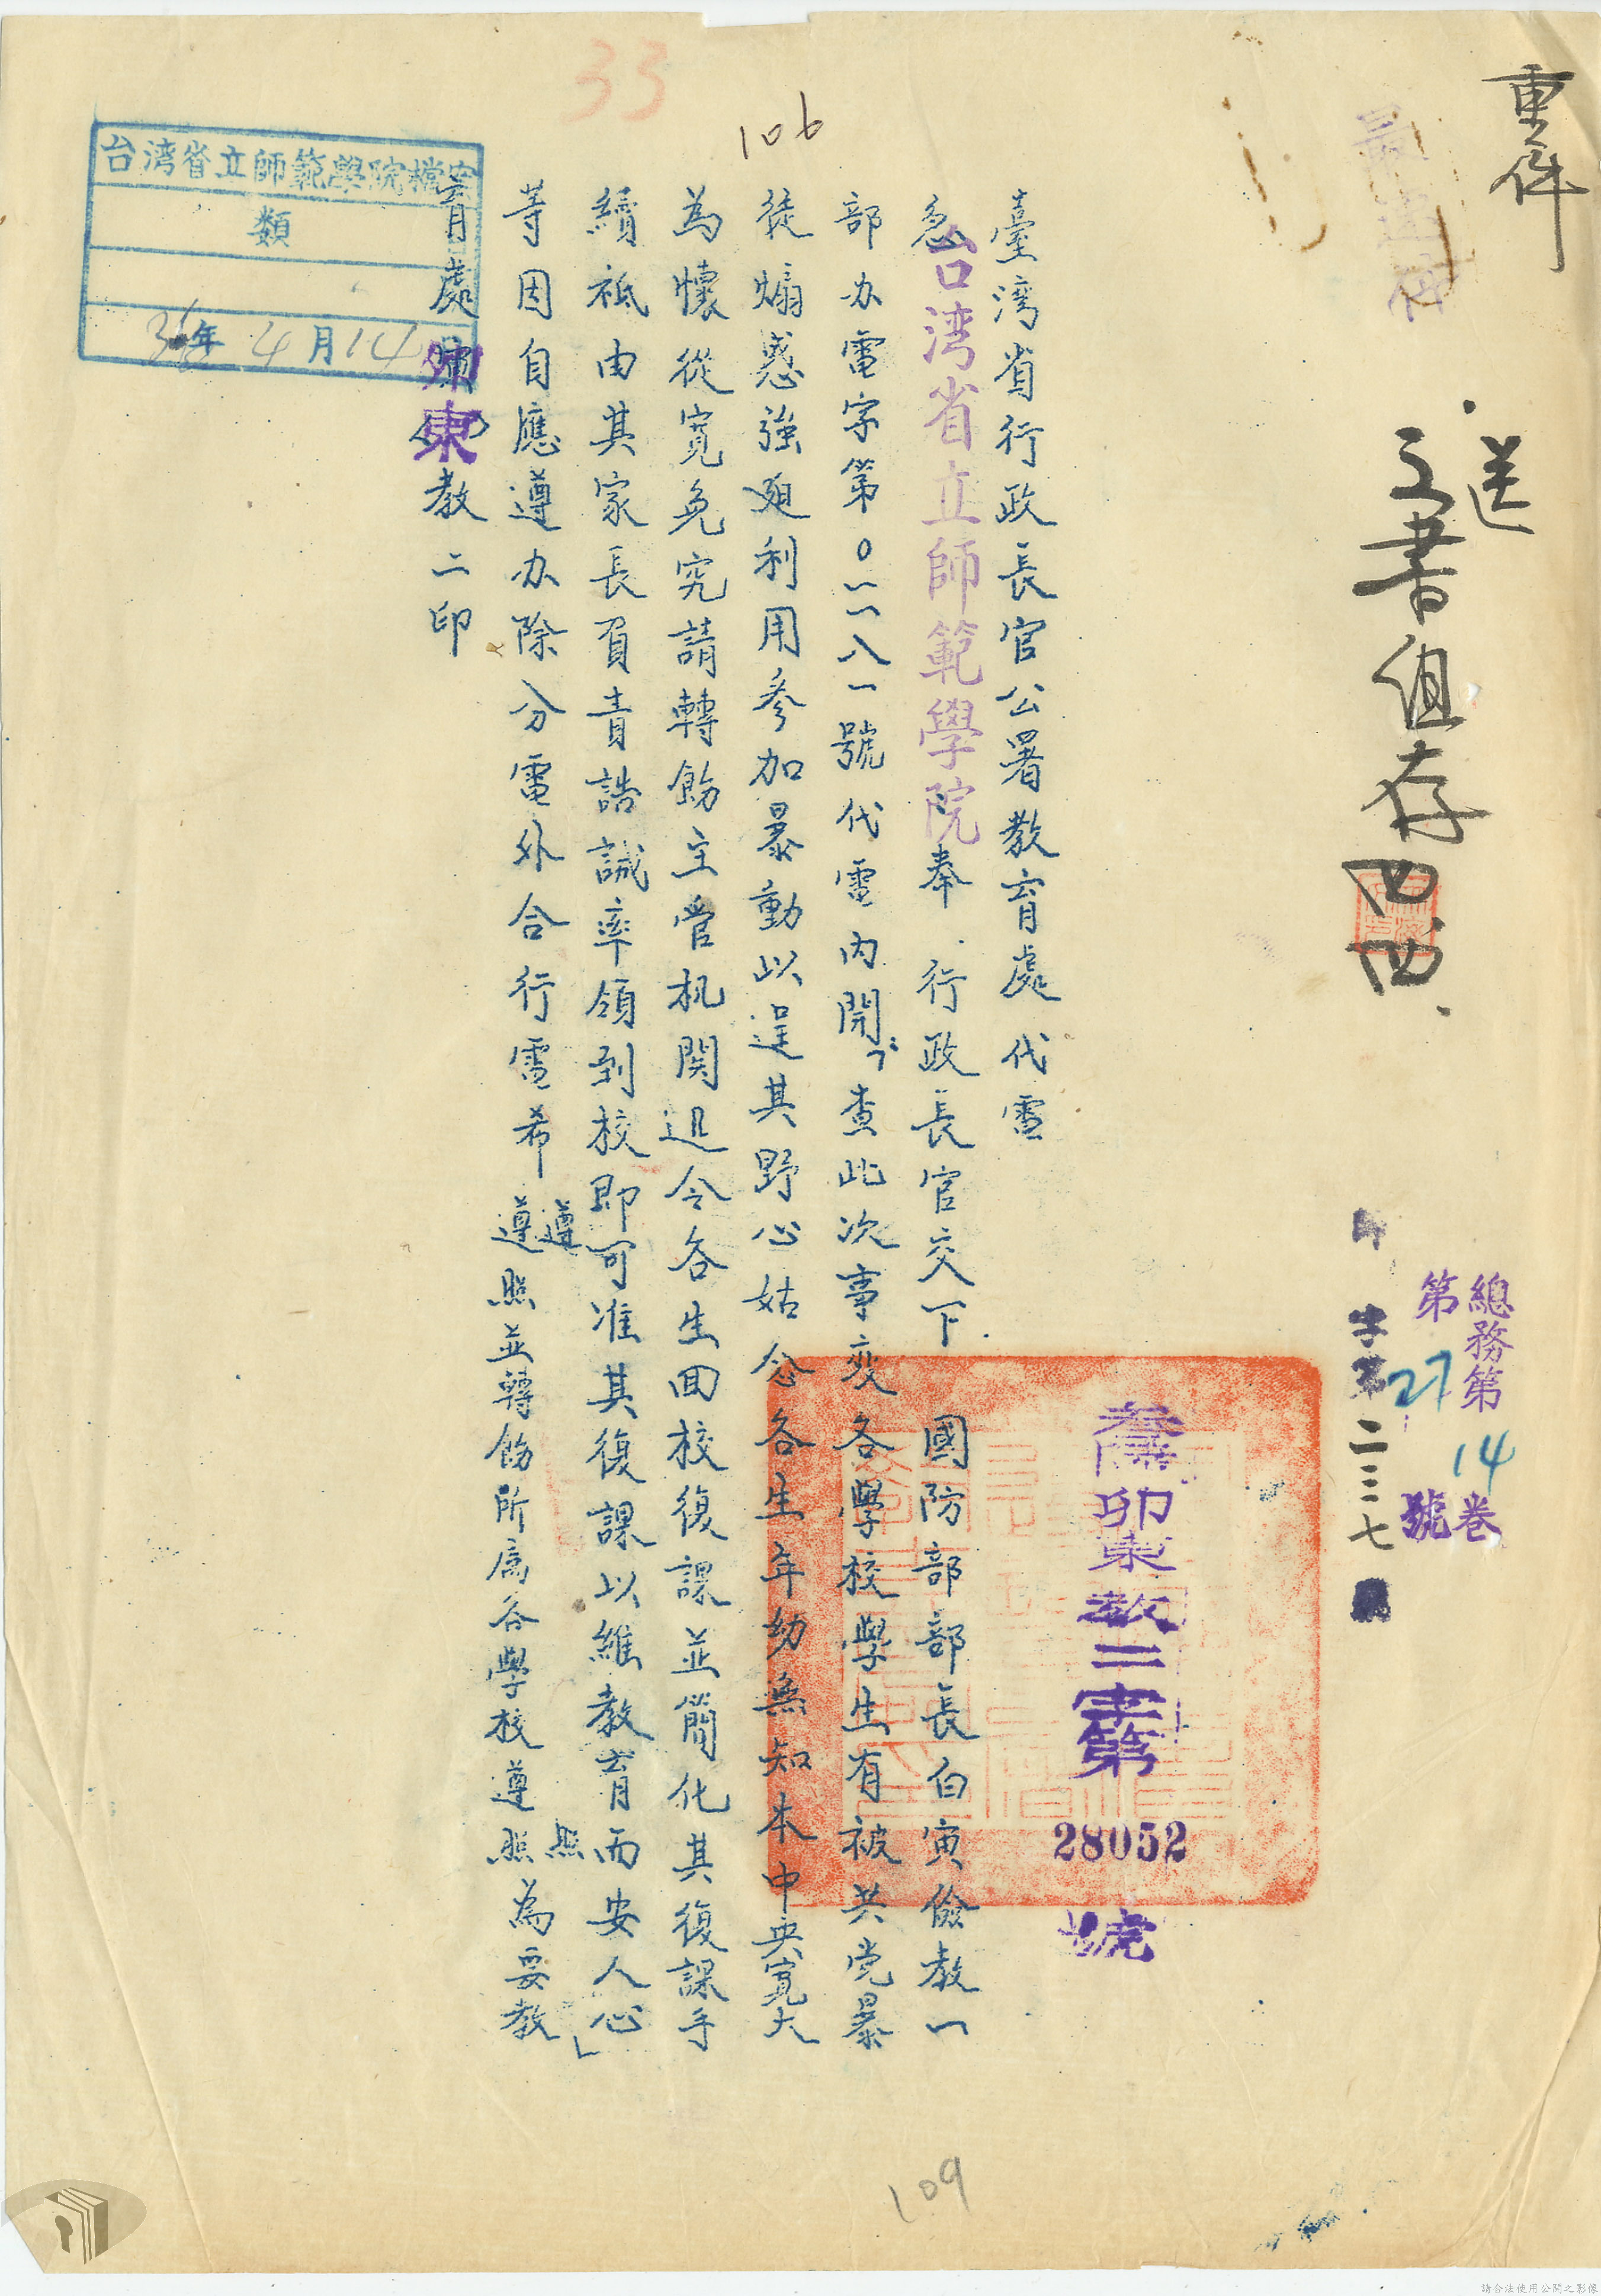 重件
最速件
送
文書組存
四
總務第14卷
第27號
字第二三三七號
齊卯東教二字第28052號
臺湾省行政長官公署教育處代電
急台湾省立師範學院奉 行政長官交下 國防部部長白寅儉教一
部办電字第〇二一八一號代電內開「查此次事変各學校學生有被共党暴
徒煽惑強廹利用參加暴動以逞其野心姑念各生年幼無知本中央寬大
為懷從寬免究請轉飭主管机関迅令各生回校復課並簡化其復課手
續祗由其家長負責誥誡率領到校即可准其復課以維教育而安人心」
等因自應遵办除分電外合行電希遵照並轉飭所屬各學校遵照為要教
遵
照
育處卯東教二印
台湾省立師範學院檔案
類
36年4月14
33
106
109
請合法使用公開之影像